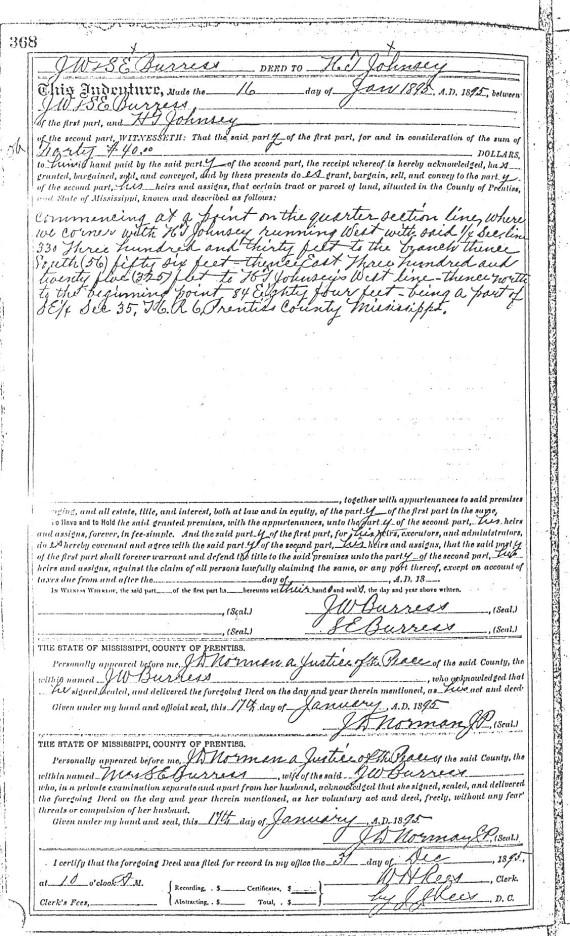 368
JW & SE Burress DEED TO H T Johnsey
This Indenture, Made the 16 day of Jan 1895, A.D. 1895, between
JW & SE Burress
of the first part, and H T Johnsey
of the second part, WITNESSETH: That the said part y of the first part, for and in consideration of the sum of
Forty $40.00 DOLLARS,
to him in hand paid by the said part y of the second part, the receipt whereof is hereby acknowledged, ha s
granted, bargained, sold, and conveyed, and by these presents do es grant, bargain, sell, and convey to the part y
of the second part, his heirs and assigns, that certain tract or parcel of land, situated in the County of Prentiss,
and State of Mississippi, known and described as follows:
Commencing at a point on the quarter section line, where
we corner with H T Johnsey running West with said 1/4 Sec line
330 Three hundred and thirty feet to the branch thence
South (56) fifty six feet - thence East Three hundred and
twenty five (325) feet to H T Johnsey's West line - thence north
to the beginning point 84 Eighty four feet - being a part of
SE/4 Sec 35, Prentiss County Mississippi.
, together with appurtenances to said premises
belonging, and all estate, title, and interest, both at law and in equity, of the part y of the first part in the same,
To Have and to Hold the said granted premises, with the appurtenances, unto the part y of the second part, his heirs
and assigns, forever, in fee-simple. And the said part y of the first part, for his heirs, executors, and administrators,
do es hereby covenant and agree with the said part y of the second part, his heirs and assigns, that the said part y
of the first part shall forever warrant and defend the title to the said premises unto the part y of the second part, his
heirs and assigns, against the claim of all persons lawfully claiming the same, or any part thereof, except on account of
taxes due from and after the day of , A.D. 18
IN WITNESS WHEREOF, the said part of the first part ha hereunto set their hand s and seal s, the day and year above written.
, (Seal.) JW Burress , (Seal.)
, (Seal.) SE Burress , (Seal.)
THE STATE OF MISSISSIPPI, COUNTY OF PRENTISS.
Personally appeared before me, J D Norman a Justice of the Peace of the said County, the
within named JW Burress , who acknowledged that
he signed, sealed, and delivered the foregoing Deed on the day and year therein mentioned, as his act and deed.
Given under my hand and official seal, this 17th day of January, A.D. 1895
J D Norman J.P. (Seal.)
THE STATE OF MISSISSIPPI, COUNTY OF PRENTISS.
Personally appeared before me, J D Norman a Justice of the Peace of the said County, the
within named Mrs SE Burress , wife of the said JW Burress
who, in a private examination separate and apart from her husband, acknowledged that she signed, sealed, and delivered
the foregoing Deed on the day and year therein mentioned, as her voluntary act and deed, freely, without any fear
threats or compulsion of her husband.
Given under my hand and seal, this 17th day of January, A.D. 1895
J D Norman J.P. (Seal.)
I certify that the foregoing Deed was filed for record in my office the 31 day of Dec , 1895,
at 10 o'clock A.M. W H Rees, Clerk.
Recording, . $ Certificates, $
Clerk's Fees, Abstracting, . $ Total, . $ by J J Rees, D. C.